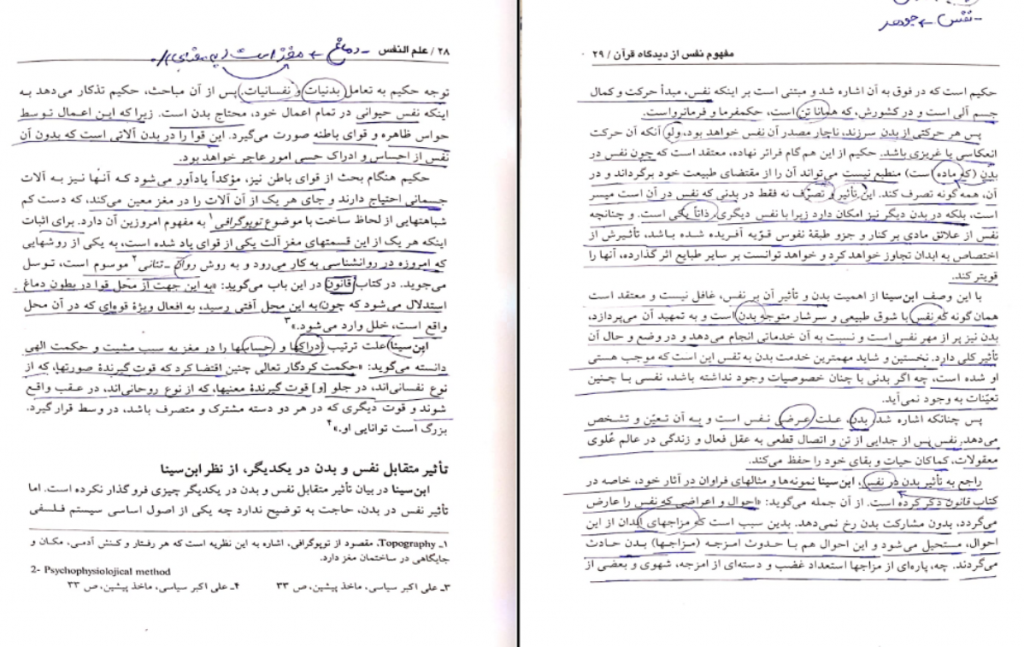 ۲۸ / علم النفس
توجه حکیم به تعامل بدنیات و نفسانیات. پس از آن مباحث، حکیم تذکار می‌دهد به
اینکه نفس حیوانی در تمام اعمال خود، محتاج بدن است. زیرا که این اعمال توسط
حواس ظاهره و قوای باطنه صورت می‌گیرد. این قوا را در بدن آلاتی است که بدون آن
نفس از احساس و ادراک حسی امور عاجز خواهد بود.
حکیم هنگام بحث از قوای باطن نیز، مؤکداً یادآور می‌شود که آنها نیز به آلات
جسمانی احتیاج دارند و جای هر یک از آن آلات را در مغز معین می‌کند، که دست کم
شباهتهایی از لحاظ ساخت با موضوع توپوگرافی۱ به مفهوم امروزین آن دارد. برای اثبات
اینکه هر یک از این قسمتهای مغز آلت یکی از قوای یاد شده است، به یکی از روشهایی
که امروزه در روانشناسی به کار می‌رود و به روش روان ـ تنانی۲ موسوم است، توسل
می‌جوید. در کتاب قانون در این باب می‌گوید: «به این جهت از محل قوا در بطون دماغ
استدلال می‌شود که چون به این محل آفتی رسید، به افعال ویژهٔ قوه‌ای که در آن محل
واقع است، خلل وارد می‌شود.»۳
ابن‌سینا علت ترتیب ادراکها و حساسها را در مغز به سبب مشیت و حکمت الهی
دانسته می‌گوید: «حکمت کردگار تعالی چنین اقتضا کرد که قوت گیرندهٔ صورتها، که از
نوع نفسانی‌اند، در جلو [و] قوت گیرندهٔ معنیها، که از نوع روحانی‌اند، در عقب واقع
شوند و قوت دیگری که در هر دو دسته مشترک و متصرف باشد، در وسط قرار گیرد.
بزرگ است توانایی او.»۴
تأثیر متقابل نفس و بدن در یکدیگر، از نظر ابن‌سینا
ابن‌سینا در بیان تأثیر متقابل نفس و بدن در یکدیگر چیزی فروگذار نکرده است. اما
تأثیر نفس در بدن، حاجت به توضیح ندارد چه یکی از اصول اساسی سیستم فلسفی
۱ـ Topography، مقصود از توپوگرافی، اشاره به این نظریه است که هر رفتار و کنش آدمی، مکان و
جایگاهی در ساختمان مغز دارد.
2- Psychophysiolojical method
۳ـ علی اکبر سیاسی، ماخذ پیشین، ص ۳۳ ۴ـ علی اکبر سیاسی، ماخذ پیشین، ص ۳۳
ـ نفس ← جوهر
مفهوم نفس از دیدگاه قرآن / ۲۹
حکیم است که در فوق به آن اشاره شد و مبتنی است بر اینکه نفس، مبدأ حرکت و کمال
جسم آلی است و در کشورش، که همانا تن است، حکمفرما و فرمانرواست.
پس هر حرکتی از بدن سرزند، ناچار مصدر آن نفس خواهد بود، ولو آنکه آن حرکت
انعکاسی یا غریزی باشد. حکیم از این هم گام فراتر نهاده، معتقد است که چون نفس در
بدن (که ماده است) منطبع نیست می‌تواند آن را از مقتضای طبیعت خود برگرداند و در
آن، همه گونه تصرف کند. این تأثیر و تصرف نه فقط در بدنی که نفس در آن است میسر
است، بلکه در بدن دیگر نیز امکان دارد زیرا با نفس دیگری ذاتاً یکی است. و چنانچه
نفس از علائق مادی بر کنار و جزو طبقهٔ نفوس قویه آفریده شده باشد، تأثیرش از
اختصاص به ابدان تجاوز خواهد کرد و خواهد توانست بر سایر طبایع اثر گذارده، آنها را
قویتر کند.
با این وصف ابن‌سینا از اهمیت بدن و تأثیر آن بر نفس، غافل نیست و معتقد است
همان گونه که نفس با شوق طبیعی و سرشار متوجه بدن است و به تمهید آن می‌پردازد،
بدن نیز پر از مهر نفس است و نسبت به آن خدماتی انجام می‌دهد و در وضع و حال آن
تأثیر کلی دارد. نخستین و شاید مهمترین خدمت بدن به نفس این است که موجب هستی
او شده است، چه اگر بدنی با چنان خصوصیات وجود نداشته باشد، نفسی با چنین
تعینات به وجود نمی‌آید.
پس چنانکه اشاره شد بدن، علت عرضی نفس است و به آن تعیّن و تشخص
می‌دهد. نفس پس از جدایی از تن و اتصال قطعی به عقل فعال و زندگی در عالم عُلوی
معقولات، کماکان حیات و بقای خود را حفظ می‌کند.
راجع به تأثیر بدن در نفس، ابن‌سینا نمونه‌ها و مثالهای فراوان در آثار خود، خاصه در
کتاب قانون ذکر کرده است. از آن جمله می‌گوید: «احوال و اعراضی که نفس را عارض
می‌گردد، بدون مشارکت بدن رخ نمی‌دهد. بدین سبب است که مزاجهای ابدان از این
احوال، مستحیل می‌شود و این احوال هم با حدوث امزجه (مزاجها) بدن حادث
می‌گردند. چه، پاره‌ای از مزاجها استعداد غضب و دسته‌ای از امزجه، شهوی و بعضی از